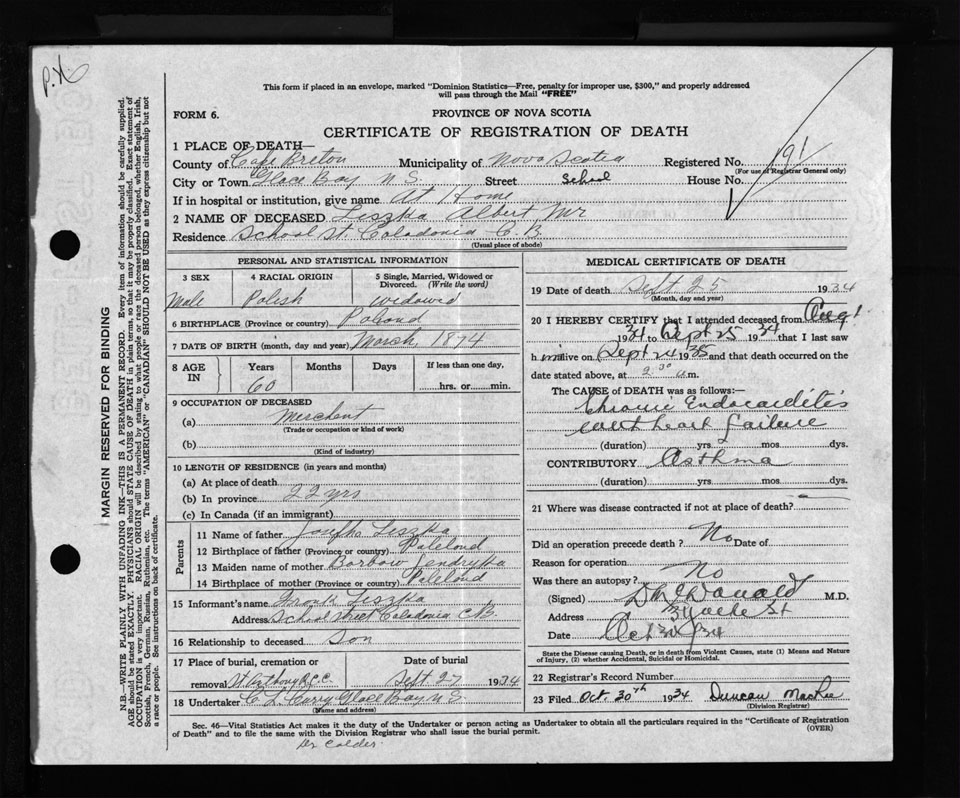 P.X.
This form if placed in an envelope, marked "Dominion Statistics—Free, penalty for improper use, $300," and properly addressed
will pass through the Mail "FREE"
FORM 6.
PROVINCE OF NOVA SCOTIA
CERTIFICATE OF REGISTRATION OF DEATH
1 PLACE OF DEATH—
County of Cape Breton Municipality of Nova Scotia Registered No. 191
(For use of Registrar General only)
City or Town Glace Bay N.S. Street School House No.
If in hospital or institution, give name At Home
2 NAME OF DECEASED Liszka Albert Mr
Residence School St. Caladonia C.B.
(Usual place of abode)
PERSONAL AND STATISTICAL INFORMATION
3 SEX 4 RACIAL ORIGIN 5 Single, Married, Widowed or Divorced. (Write the word)
Male Polish widowed
6 BIRTHPLACE (Province or country) Poland
7 DATE OF BIRTH (month, day and year) March, 1874
8 AGE IN Years Months Days If less than one day,
60 hrs. or min.
9 OCCUPATION OF DECEASED
(a) Merchent
(Trade or occupation or kind of work)
(b)
(Kind of industry)
10 LENGTH OF RESIDENCE (in years and months)
(a) At place of death
(b) In province 22 yrs
(c) In Canada (if an immigrant)
Parents
11 Name of father Liszka
12 Birthplace of father (Province or country) Polelond
13 Maiden name of mother Barbow
14 Birthplace of mother (Province or country) Polelond
15 Informant's name Frank Liszka
Address School street Caladonia C.B.
16 Relationship to deceased son
17 Place of burial, cremation or removal Date of burial
St Anthony R.C.C. Sept 27 1934
18 Undertaker Glace Bay N.S.
(Name and address)
MEDICAL CERTIFICATE OF DEATH
19 Date of death Sept 25 1934
(Month, day and year)
20 I HEREBY CERTIFY that I attended deceased from Aug 1
1934 to Sept 25 1934 that I last saw
him alive on Sept 24 1935 and that death occurred on the
date stated above, at 2 30 a.m.
The CAUSE of DEATH was as follows:—
Chronic Endocarditis
with heart failure
(duration) yrs. mos. dys.
CONTRIBUTORY Asthma
(duration) yrs. mos. dys.
21 Where was disease contracted if not at place of death?
Did an operation precede death? No Date of
Reason for operation
Was there an autopsy? No
(Signed) M.D.
Address St
Date Oct 30/34
State the Disease causing Death, or in death from Violent Causes, state (1) Means and Nature
of Injury, (2) whether Accidental, Suicidal or Homicidal.
22 Registrar's Record Number
23 Filed Oct. 30th 1934 Duncan MacRae
(Division Registrar)
Sec. 46—Vital Statistics Act makes it the duty of the Undertaker or person acting as Undertaker to obtain all the particulars required in the "Certificate of Registration
of Death" and to file the same with the Division Registrar who shall issue the burial permit.
(OVER)
Dr Calder
MARGIN RESERVED FOR BINDING
N.B.—WRITE PLAINLY WITH UNFADING INK—THIS IS A PERMANENT RECORD. Every item of information should be carefully supplied.
AGE should be stated EXACTLY. PHYSICIANS should STATE CAUSE OF DEATH in plain terms, so that it may be properly classified. Exact statement of
OCCUPATION is very important. RACIAL ORIGIN will be described by stating to what people or race the deceased person belonged, whether English, Irish,
Scottish, French, German, Russian, Ruthenian, etc. The terms "AMERICAN" or "CANADIAN" SHOULD NOT BE USED as they express citizenship but not
a race or people. See instructions on back of certificate.